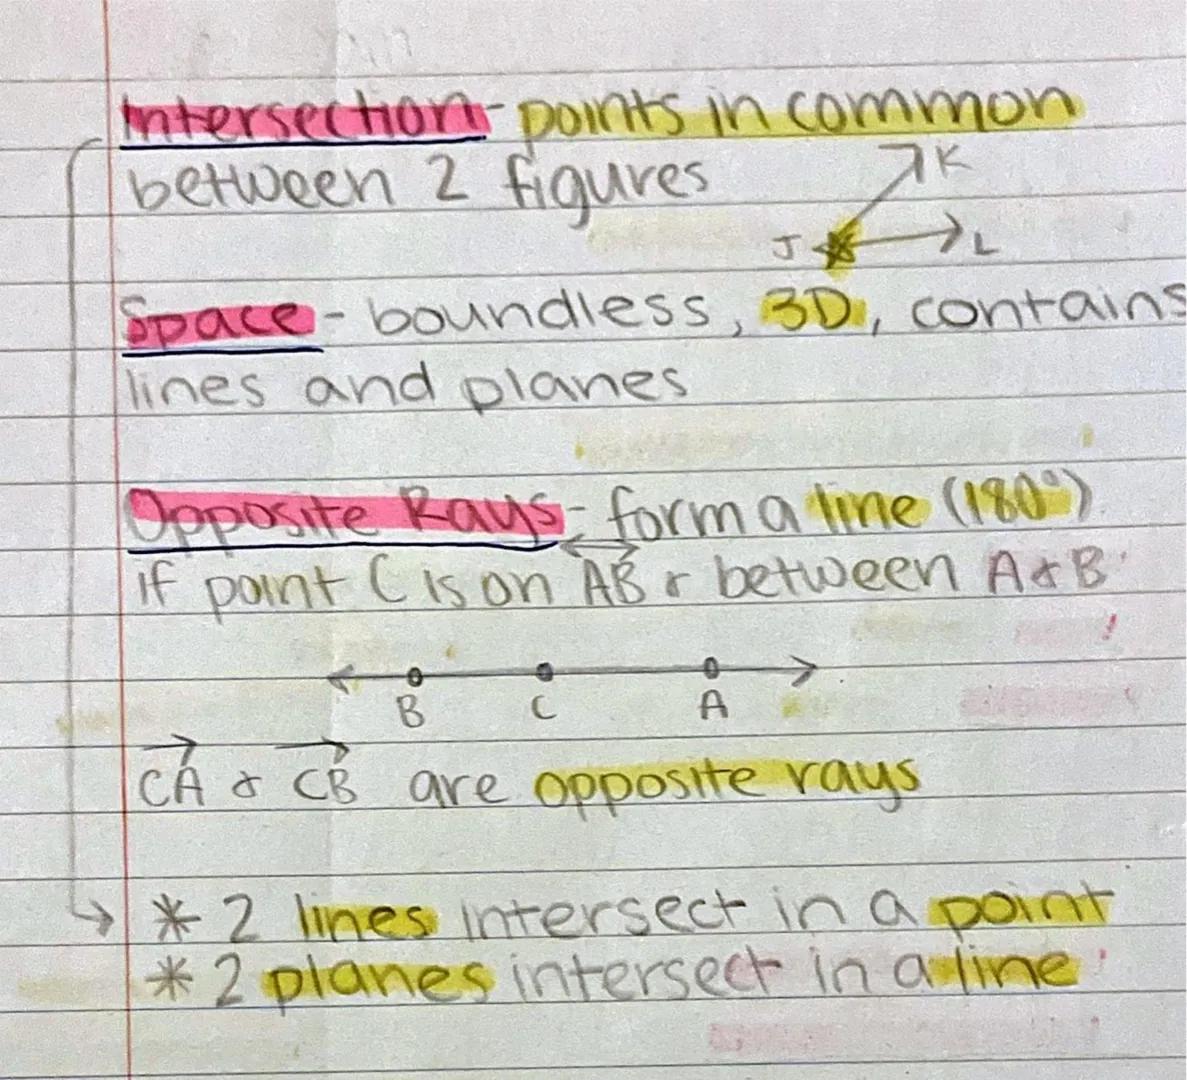 Intersection - points in common
between 2 figures
K
J L
Space - boundless, 3D, contains
lines and planes
Opposite Rays - form a line (180°)
if point C is on AB & between A & B
B C A
CA & CB are opposite rays
* 2 lines intersect in a point
* 2 planes intersect in a line